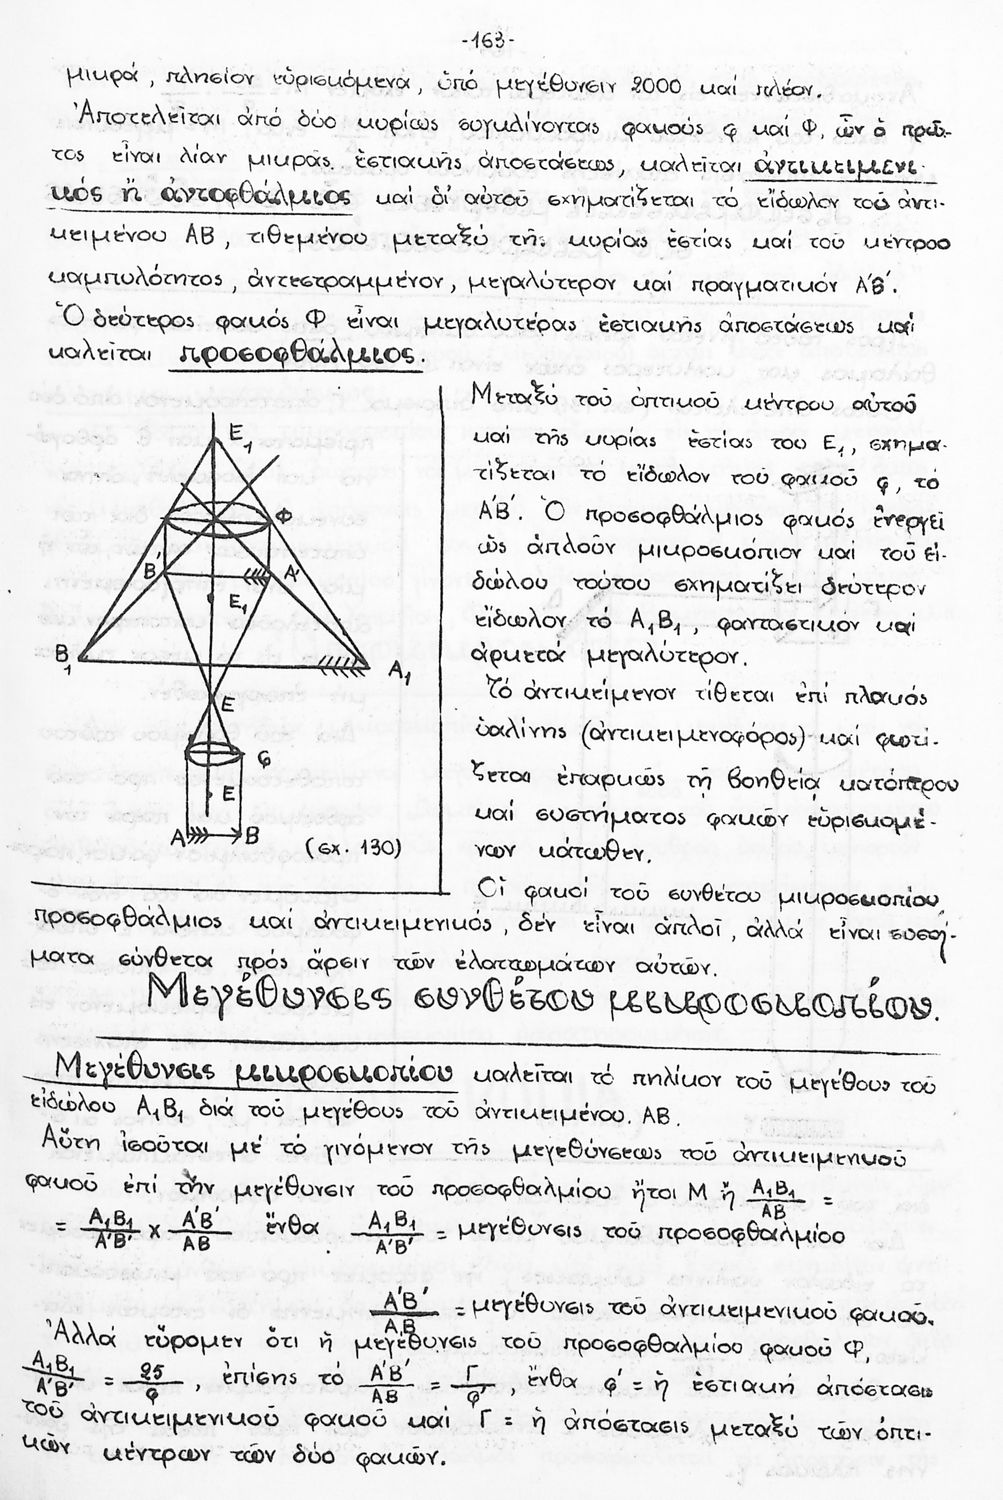 -163-
μικρά, πλησίον εὑρισκόμενα, ὑπό μεγέθυνσιν 2000 καί πλέον.
Ἀποτελεῖται ἀπό δύο κυρίως συγκλίνοντας φακούς φ καί Φ, ὧν ὁ πρῶ-
τος εἶναι λίαν μικρᾶς ἑστιακῆς ἀποστάσεως, καλεῖται ἀντικειμενι-
κός ἤ ἀντοφθάλμιος καί δι' αὐτοῦ σχηματίζεται τό εἴδωλον τοῦ ἀντι-
κειμένου ΑΒ, τιθεμένου μεταξύ τῆς κυρίας ἑστίας καί τοῦ κέντρου
καμπυλότητος, ἀντεστραμμένον, μεγαλύτερον καί πραγματικόν Α΄Β΄.
Ὁ δεύτερος φακός Φ εἶναι μεγαλυτέρας ἑστιακῆς ἀποστάσεως καί
καλεῖται προσοφθάλμιος.
Μεταξύ τοῦ ὀπτικοῦ κέντρου αὐτοῦ
καί τῆς κυρίας ἑστίας του Ε₁, σχημα-
τίζεται τό εἴδωλον τοῦ φακοῦ φ, τό
Α΄Β΄. Ὁ προσοφθάλμιος φακός ἐνεργεῖ
ὡς ἁπλοῦν μικροσκόπιον καί τοῦ εἰ-
δώλου τούτου σχηματίζει δεύτερον
εἴδωλον τό Α₁Β₁, φανταστικον καί
ἀρκετά μεγαλύτερον.
Τό ἀντικείμενον τίθεται ἐπί πλακός
ὑαλίνης (ἀντικειμενοφόρος) καί φωτί-
ζεται ἐπαρκῶς τῇ βοηθείᾳ κατόπτρου
καί συστήματος φακῶν εὑρισκομέ-
νων κάτωθεν.
Οἱ φακοί τοῦ συνθέτου μικροσκοπίου,
Ε₁
Φ
Β΄
Α΄
Ε₁
Β₁
Α₁
Ε
φ
Ε
Α
Β
(σχ. 130)
προσοφθάλμιος καί ἀντικειμενικός, δέν εἶναι ἁπλοῖ, ἀλλά εἶναι συστή-
ματα σύνθετα πρός ἄρσιν τῶν ἐλαττωμάτων αὐτῶν.
Μεγέθυνσις συνθέτου μικροσκοπίου.
Μεγέθυνσις μικροσκοπίου καλεῖται τό πηλίκον τοῦ μεγέθους τοῦ
εἰδώλου Α₁Β₁ διά τοῦ μεγέθους τοῦ ἀντικειμένου. ΑΒ.
Αὕτη ἰσοῦται μέ τό γινόμενον τῆς μεγεθύνσεως τοῦ ἀντικειμενικοῦ
φακοῦ ἐπί τήν μεγέθυνσιν τοῦ προσοφθαλμίου ἤτοι Μ ἤ Α₁Β₁/ΑΒ =
= Α₁Β₁/Α΄Β΄ x Α΄Β΄/ΑΒ ἔνθα Α₁Β₁/Α΄Β΄ = μεγέθυνσις τοῦ προσοφθαλμίου
Α΄Β΄/ΑΒ = μεγέθυνσις τοῦ ἀντικειμενικοῦ φακοῦ.
Ἀλλά εὕρομεν ὅτι ἡ μεγέθυνσις τοῦ προσοφθαλμίου φακοῦ Φ,
Α₁Β₁/Α΄Β΄ = 25/φ, ἐπίσης τό Α΄Β΄/ΑΒ = Γ/φ΄, ἔνθα φ΄ = ἡ ἑστιακή ἀπόστασις
τοῦ ἀντικειμενικοῦ φακοῦ καί Γ = ἡ ἀπόστασις μεταξύ τῶν ὀπτι-
κῶν κέντρων τῶν δύο φακῶν.